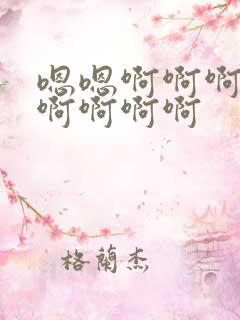 嗯嗯啊啊啊
啊啊啊啊
格蘭杰